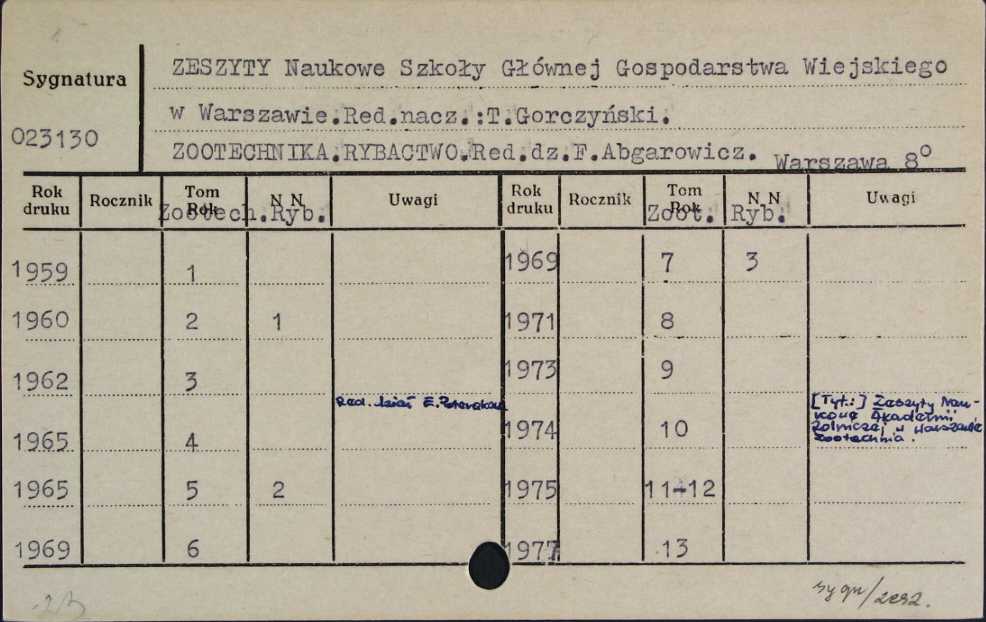 Sygnatura
023130
ZESZYTY Naukowe Szkoły Głównej Gospodarstwa Wiejskiego
w Warszawie.Red.nacz.:T.Gorczyński.
ZOOTECHNIKA.RYBACTWO.Red.dz.F.Abgarowicz. Warszawa 8°
Rok druku Rocznik Tom Rok N N Uwagi Rok druku Rocznik Tom Rok N N Uwagi
Zootech.Ryb. Zoot. Ryb.
1959 1 1969 7 3
1960 2 1 1971 8
1962 3 1973 9
Red. dział E.
[Tyt:] Zeszyty Nau-
kowe Akademii
Rolniczej w Warszawie
Zootechnia.
1965 4 1974 10
1965 5 2 1975 11-12
1969 6 1977 13
sygn/zesz.